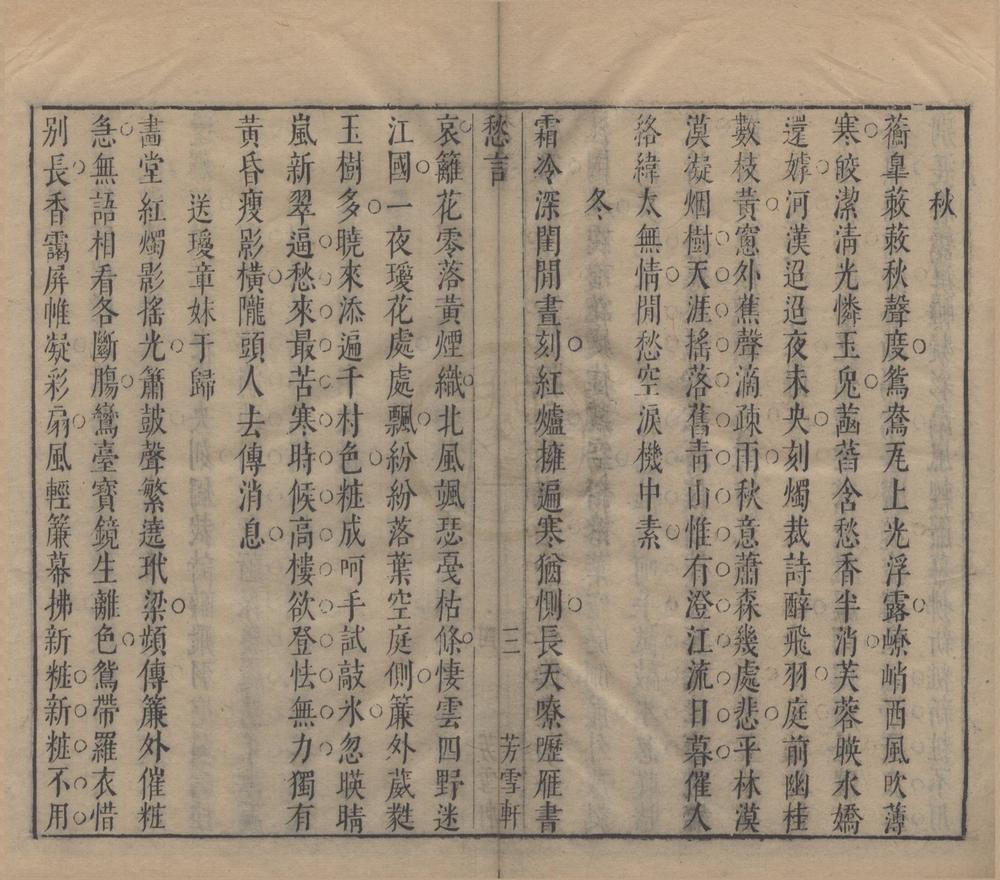 秋
蘅皐蔌蔌秋聲度鴛鴦瓦上光浮露嘹峭西風吹薄
寒皎潔淸光憐玉兔菡萏含愁香半消芙蓉暎水嬌
還嫭河漢迢迢夜未央刻燭裁詩醉飛羽庭前幽桂
數枝黃窻外蕉聲滴疎雨秋意蕭森幾處悲平林漠
漠凝烟樹天涯搖落舊靑山惟有澄江流日暮催人
絡緯太無情閒愁空淚機中素
冬
霜冷深閨閒晝刻紅爐擁遍寒猶惻長天嘹嚦雁書
愁言
三
芳雪軒
哀籬花零落黃煙織北風颯瑟戞枯條悽雲四野迷
江國一夜瓊花處處飄紛紛落葉空庭側簾外葳蕤
玉樹多曉來添遍千村色粧成呵手試敲氷忽暎晴
嵐新翠逼愁來最苦寒時候高樓欲登怯無力獨有
黃昏瘦影橫隴頭人去傳消息
送瓊章妹于歸
畵堂紅燭影搖光簫皷聲繁遶玳梁頻傳簾外催粧
急無語相看各斷腸鸞臺寶鏡生離色鴛帶羅衣惜
別長香靄屛帷凝彩扇風輕簾幕拂新粧新粧不用